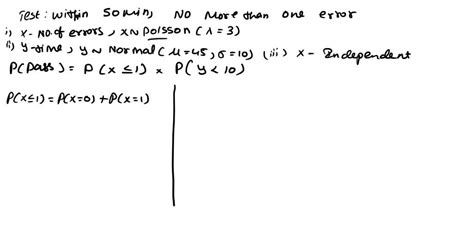 Test: Within 50 min, No More than one error
i) x - No. of errors, x ~ Poisson (λ = 3)
ii) y - time, y ~ Normal (μ = 45, σ = 10) (iii) x - Independent
P(Pass) = P(x ≤ 1) × P(y < 10)
P(x ≤ 1) = P(x=0) + P(x=1)